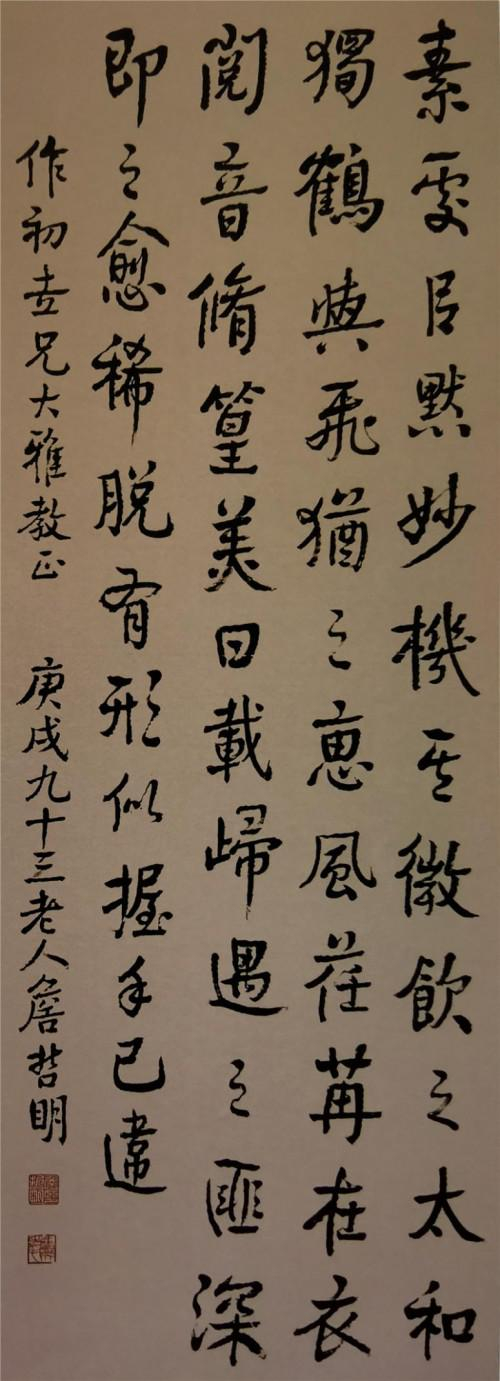 素處㠯默妙機其微飲之太和
獨鶴與飛猶之惠風荏苒在衣
閱音脩篁美曰載歸遇之匪深
即之愈稀脫有形似握手已違
作初吾兄大雅教正 庚戌九十三老人詹哲明